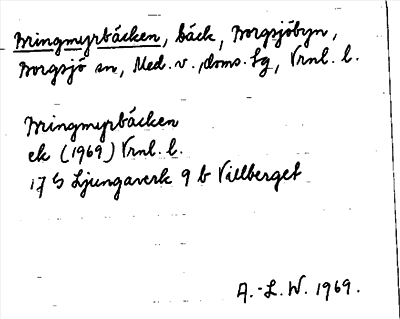 Bringmyrbäcken, bäck, Borgsjöbyn,
Borgsjö sn, Med. v. doms. lg, Vrnl. l.
Bringmyrbäcken
ek (1969) Vrnl. l.
17 G Ljungaverk 9 b Villberget
A.-L. W. 1969.